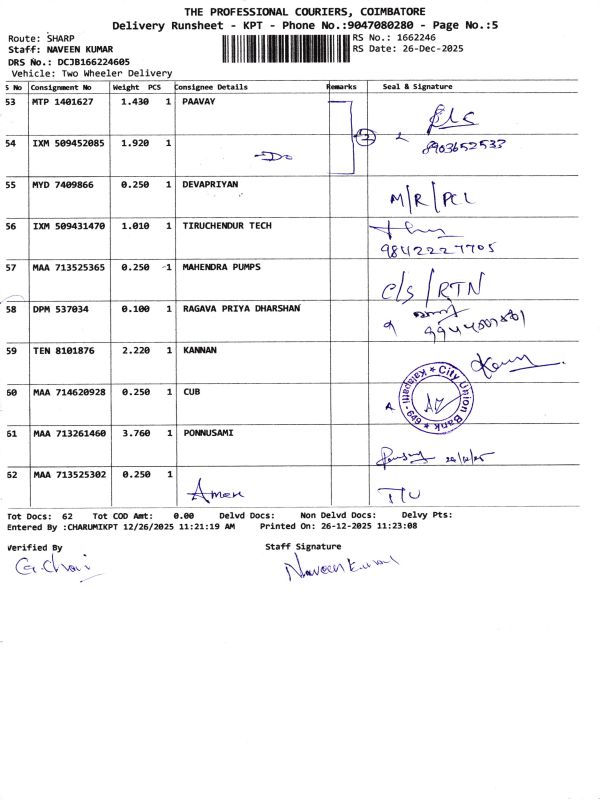 THE PROFESSIONAL COURIERS, COIMBATORE
Delivery Runsheet - KPT - Phone No.:9047080280 - Page No.:5
Route: SHARP
RS No.: 1662246
Staff: NAVEEN KUMAR
RS Date: 26-Dec-2025
DRS No.: DCJB166224605
Vehicle: Two Wheeler Delivery
S No Consignment No Weight PCS Consignee Details Remarks Seal & Signature
53 MTP 1401627 1.430 1 PAAVAY
54 IXM 509452085 1.920 1 -Do 2 8903652533
55 MYD 7409866 0.250 1 DEVAPRIYAN M/R/PCL
56 IXM 509431470 1.010 1 TIRUCHENDUR TECH
9842227705
57 MAA 713525365 0.250 1 MAHENDRA PUMPS C/S/RTN
58 DPM 537034 0.100 1 RAGAVA PRIYA DHARSHAN
59 TEN 8101876 2.220 1 KANNAN
60 MAA 714620928 0.250 1 CUB
City Union Bank * Kalapatti - 649 *
61 MAA 713261460 3.760 1 PONNUSAMI
62 MAA 713525302 0.250 1 Amen
Tot Docs: 62 Tot COD Amt: 0.00 Delvd Docs: Non Delvd Docs: Delvy Pts:
Entered By :CHARUMIKPT 12/26/2025 11:21:19 AM Printed On: 26-12-2025 11:23:08
Verified By Staff Signature
Naveenkumar